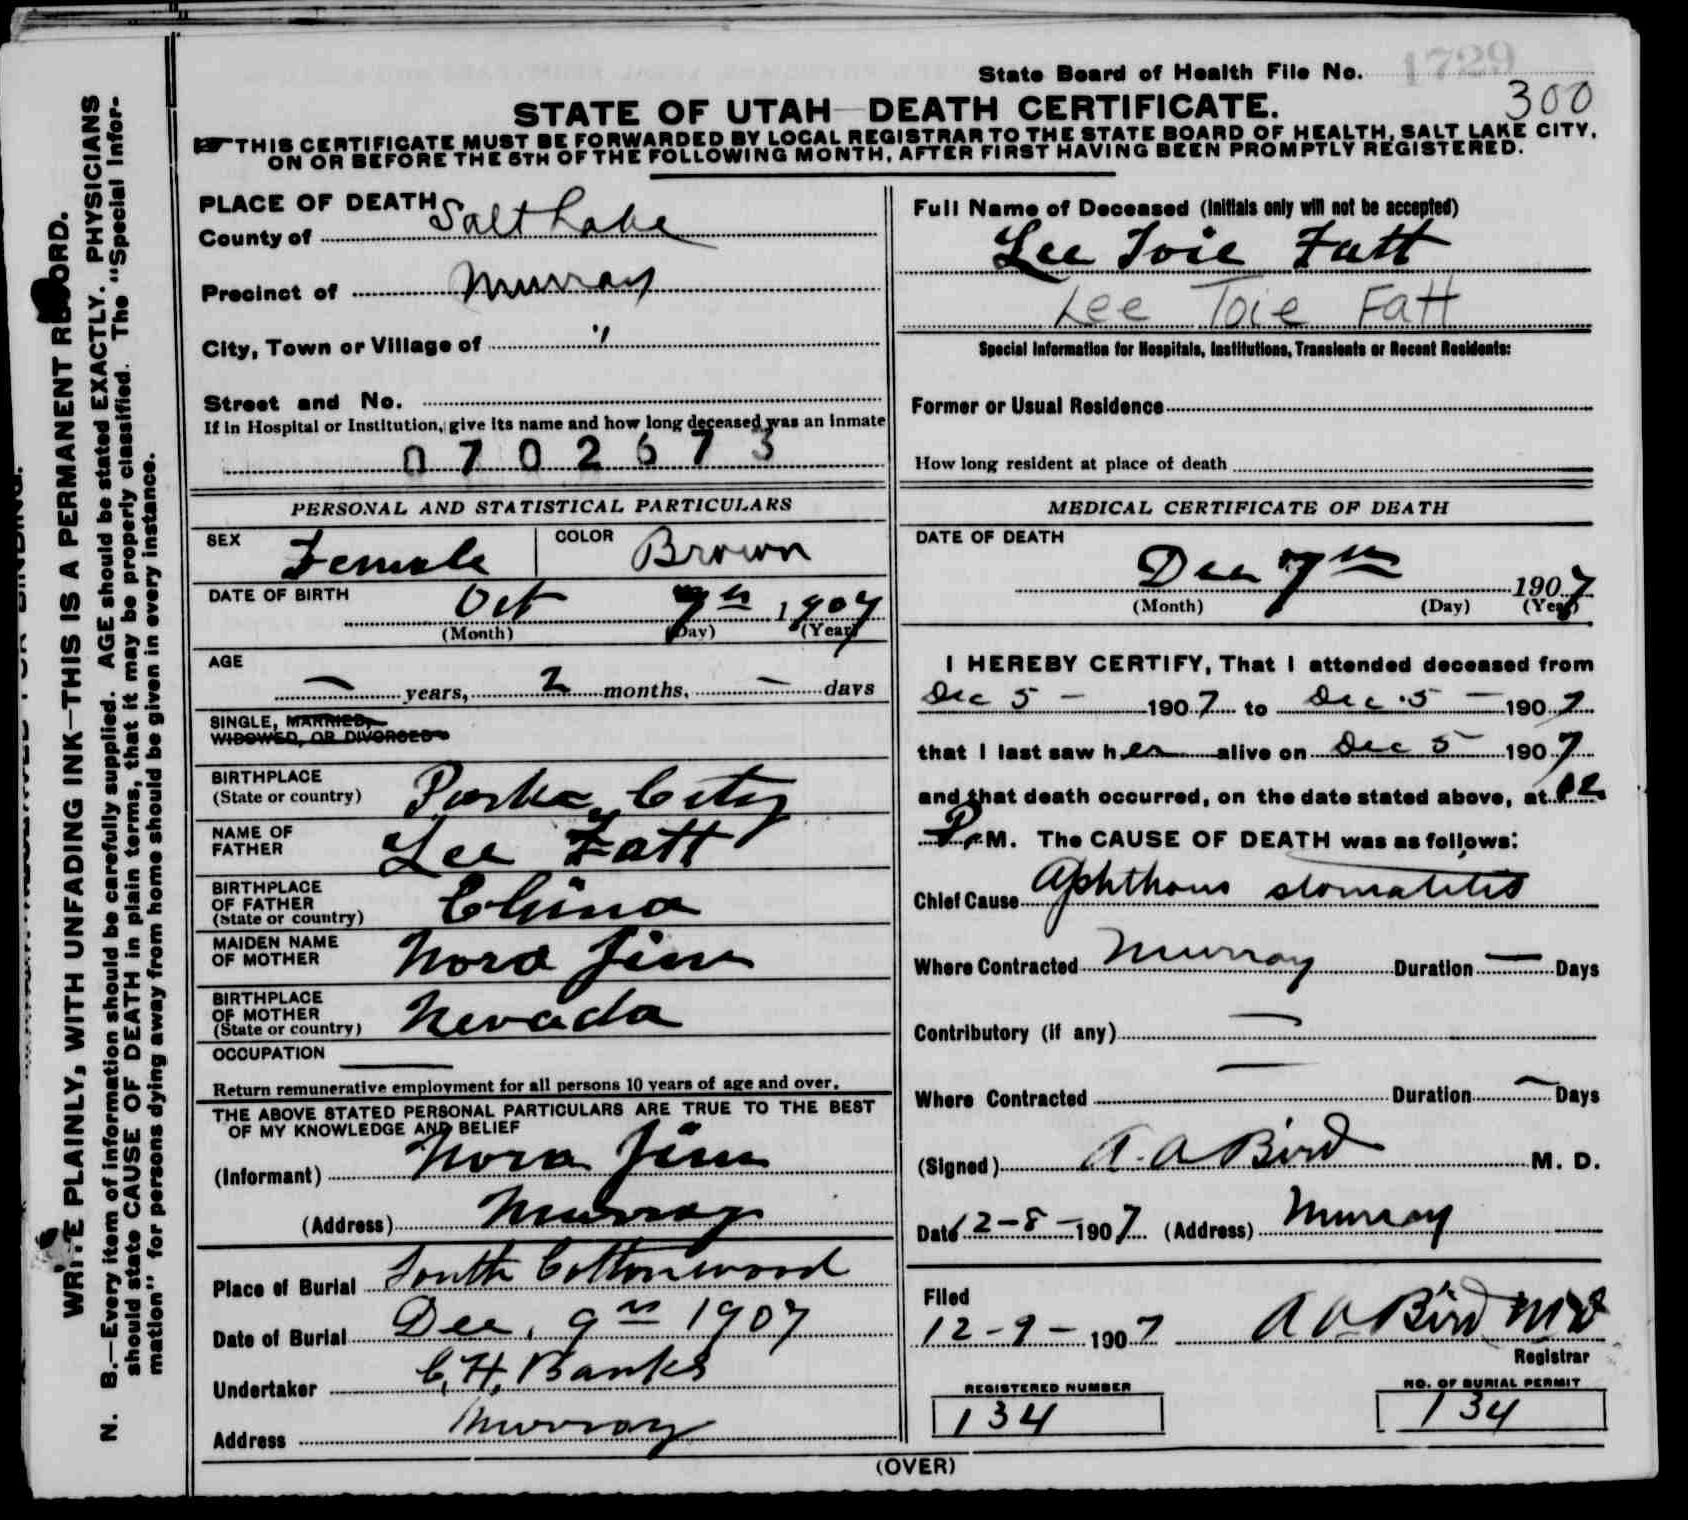 State Board of Health File No. 1729
300
STATE OF UTAH—DEATH CERTIFICATE.
THIS CERTIFICATE MUST BE FORWARDED BY LOCAL REGISTRAR TO THE STATE BOARD OF HEALTH, SALT LAKE CITY,
ON OR BEFORE THE 5TH OF THE FOLLOWING MONTH, AFTER FIRST HAVING BEEN PROMPTLY REGISTERED.
WRITE PLAINLY, WITH UNFADING INK—THIS IS A PERMANENT RECORD.
N. B.—Every item of information should be carefully supplied. AGE should be stated EXACTLY. PHYSICIANS
should state CAUSE OF DEATH in plain terms, that it may be properly classified. The "Special Infor-
mation" for persons dying away from home should be given in every instance.
PLACE OF DEATH
County of Salt Lake
Precinct of Murray
City, Town or Village of "
Street and No.
If in Hospital or Institution, give its name and how long deceased was an inmate
0702673
PERSONAL AND STATISTICAL PARTICULARS
SEX Female COLOR Brown
DATE OF BIRTH Oct 7th 1907
(Month) (Day) (Year)
AGE
— years, 2 months, — days
SINGLE, MARRIED,
WIDOWED, OR DIVORCED
BIRTHPLACE
(State or country) Parke City
NAME OF
FATHER Lee Fatt
BIRTHPLACE
OF FATHER
(State or country) China
MAIDEN NAME
OF MOTHER Nora Jim
BIRTHPLACE
OF MOTHER
(State or country) Nevada
OCCUPATION —
Return remunerative employment for all persons 10 years of age and over.
THE ABOVE STATED PERSONAL PARTICULARS ARE TRUE TO THE BEST
OF MY KNOWLEDGE AND BELIEF
(Informant) Nora Jim
(Address) Murray
Place of Burial South Cottonwood
Date of Burial Dec. 9th 1907
Undertaker C. H. Banks
Address Murray
Full Name of Deceased (Initials only will not be accepted)
Lee Toie Fatt
Lee Toie Fatt
Special Information for Hospitals, Institutions, Transients or Recent Residents:
Former or Usual Residence
How long resident at place of death
MEDICAL CERTIFICATE OF DEATH
DATE OF DEATH
Dec 7th 1907
(Month) (Day) (Year)
I HEREBY CERTIFY, That I attended deceased from
Dec 5 — 1907 to Dec. 5 — 1907
that I last saw her alive on Dec 5 1907
and that death occurred, on the date stated above, at 12
P.M. The CAUSE OF DEATH was as follows:
Chief Cause Aphthous stomatitis
Where Contracted Murray Duration — Days
Contributory (if any) —
Where Contracted — Duration — Days
(Signed) A. A Bird M. D.
Date 12-8-1907 (Address) Murray
Filed
12-9-1907 A A Bird MD
Registrar
REGISTERED NUMBER
134
NO. OF BURIAL PERMIT
134
(OVER)